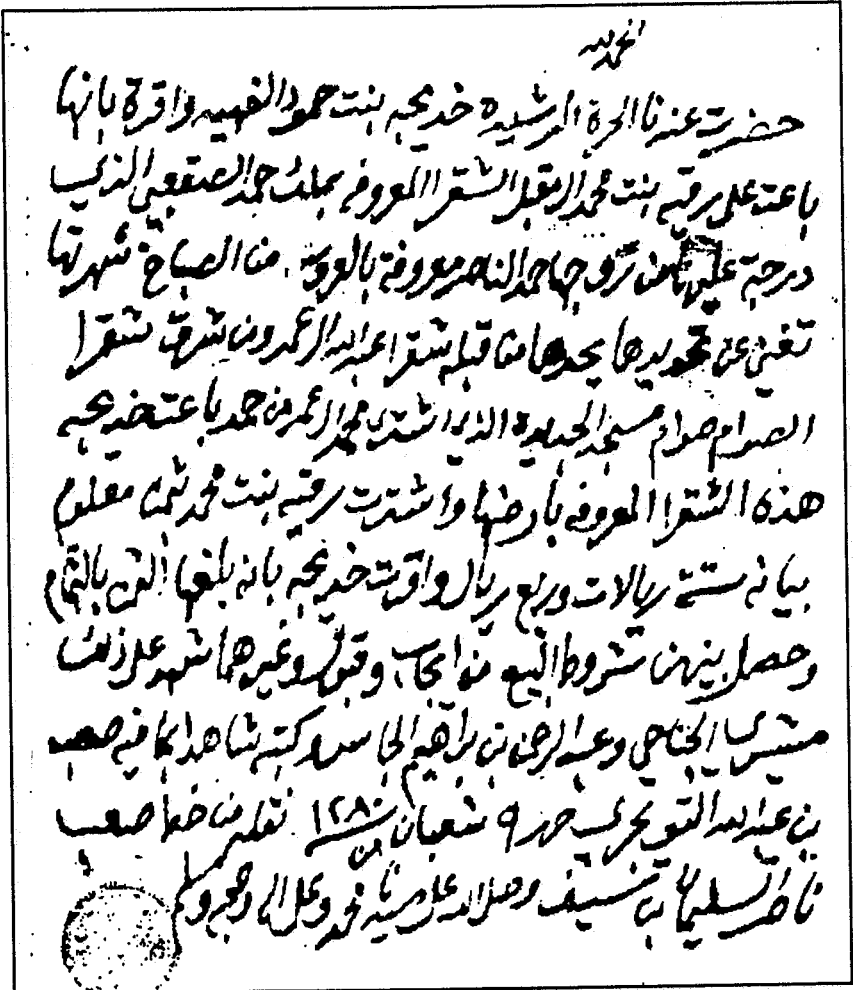 الحمد لله
حضرت عندنا الحرة الرشيده خديجه بنت حمود الفهيد واقرة بانها
باعت على رقيه بنت محمد المقبل الشقرا المعروفه بملك حمد الصقعبي الذي
درجة عليها من زوجها حمد الناصر معروفة من الصباخ شهرتها
تغني عن تحديدها يحدها من قبله شقرا عبد الله العمر ومن شرق شقرا
الصوام صوام مسجد الجديدة الذي اشترا محمد العمر من حمد باعت خديجه
هذه الشقرا المعروفه بارضها واشترت رقيه بنت محمد بثمن معلوم
بيانه ستة ريالات وربع ريال واقرت خديجه بانه بلغها الثمن بالتمام
وحصل بينهن شروط البيع من ايجاب وقبول وغيرهما شهد على ذلك
مشري الجناحي وعبد الرحمن بن براهيم الجاسر وكتبه شاهدا بما فيه صعب
بن عبد الله التويجري حرر ٩ شعبان سنة ١٢٨٠ نقله من خط صعب
ناصر السليمان بن سيف وصلى الله على سيدنا محمد وعلى اله وصحبه وسلم